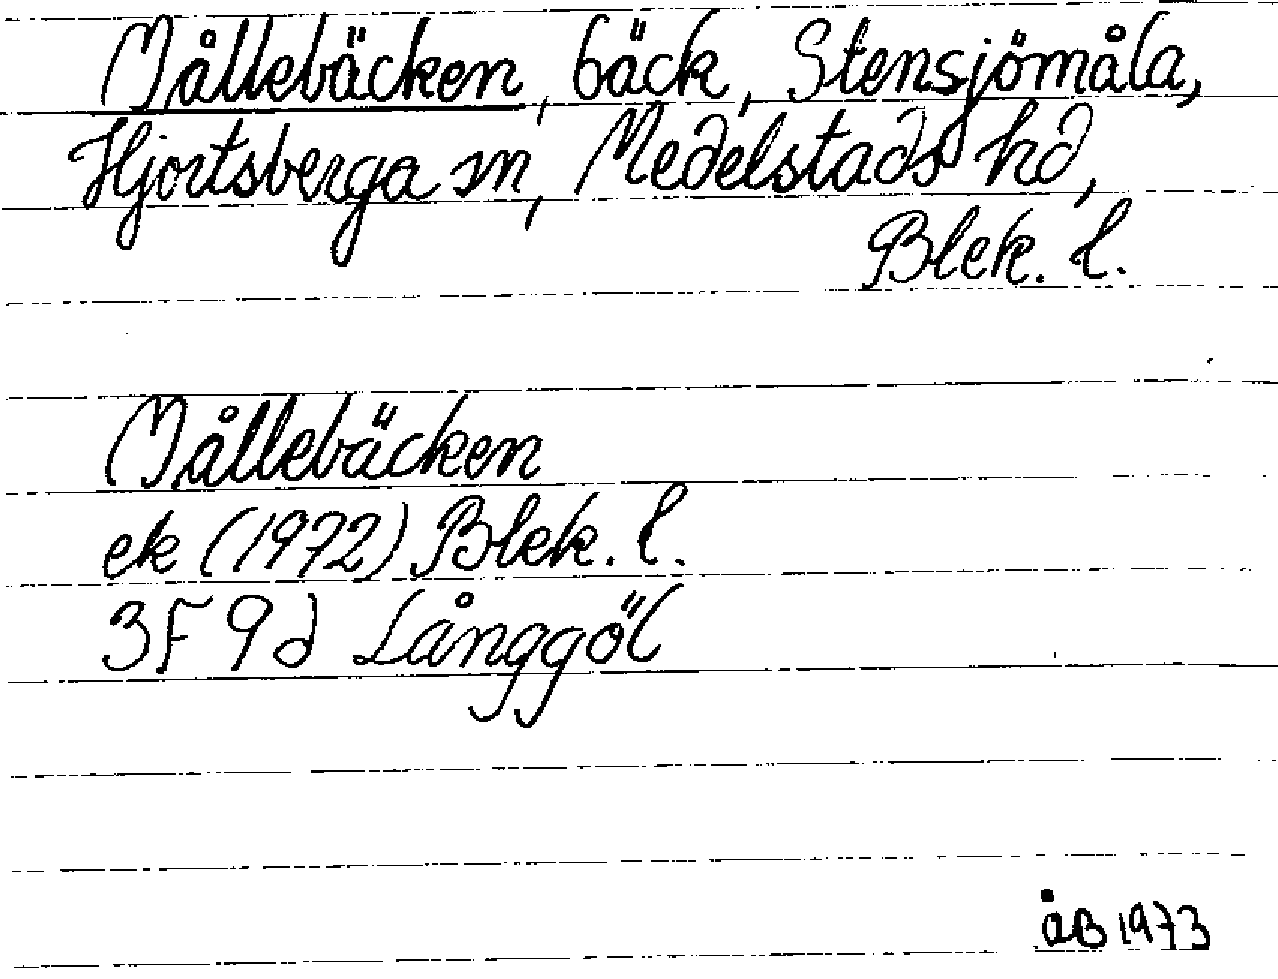 Mållebäcken, bäck, Stensjömåla,
Hjortsberga sn, Medelstads hd,
Blek. l.
Mållebäcken
ek (1972) Blek. l.
3F 9d Långgöl
åB 1973